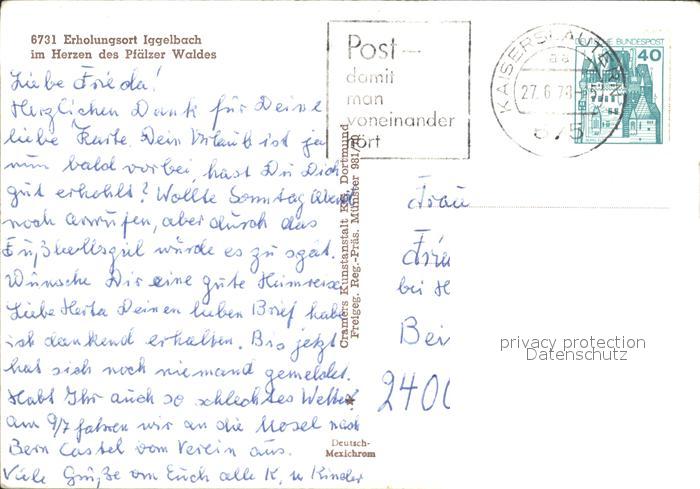 6731 Erholungsort Iggelbach
im Herzen des Pfälzer Waldes
Liebe Frieda!
Herzlichen Dank für Deine
liebe Karte. Dein Urlaub ist ja
nun bald vorbei, hast Du Dich
gut erhohlt? Wollte Sonntag Abend
noch anrufen, aber durch das
Fußballspiel wurde es zu spät.
Wünsche Dir eine gute Heimreise
Liebe Herta Deinen lieben Brief habe
ich dankend erhalten. Bis jetzt
hat sich noch niemand gemeldet.
Habt Ihr auch so schlechtes Wetter?
am 9/7 fahren wir an die Mosel nach
Bern Castel vom Verein aus.
Viele Grüße von Euch alle K. u Kinder
Cramers Kunstanstalt KG, Dortmund
Freigeg. Reg.-Präs. Münster 981/
Deutsch-
Mexichrom
Post-
damit
man
voneinander
hört
KAISERSLAUTERN
aa
27.6.78
675
DEUTSCHE BUNDESPOST
40
Frau
bei H
Bei
240
privacy protection
Datenschutz